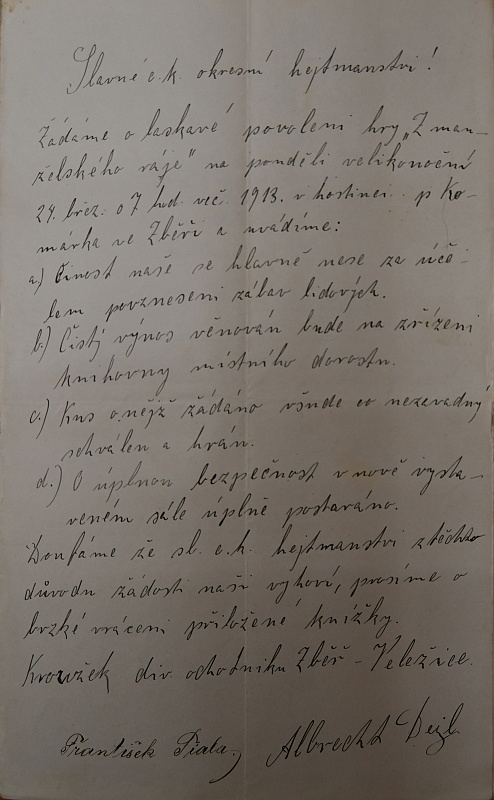 Slavné c.k. okresní hejtmanství!
Žádáme o laskavé povolení hry „Z man-
želského ráje" na pondělí velikonoční
24. břez. o 7 hod. več. 1913. v hostinci p Ko-
márka ve Zběři a uvádíme:
a.) Činost naše se hlavně nese za úče-
lem povznesení zábav lidových.
b.) Čistý výnos věnován bude na zřízení
knihovny místního dorostu.
c.) Kus o nějž žádáno všude co nezavadný
schválen a hrán.
d.) O úplnou bezpečnost v nově vysta-
veném sále úplně postaráno.
Doufáme že sl. c.k. hejtmanství z těchto
důvodu žádosti naší vyhoví, prosíme o
brzké vrácení přiložené knížky.
Kroužek div. ochotniku Zběř - Velešice.
František Fiala, Albrecht Dejl